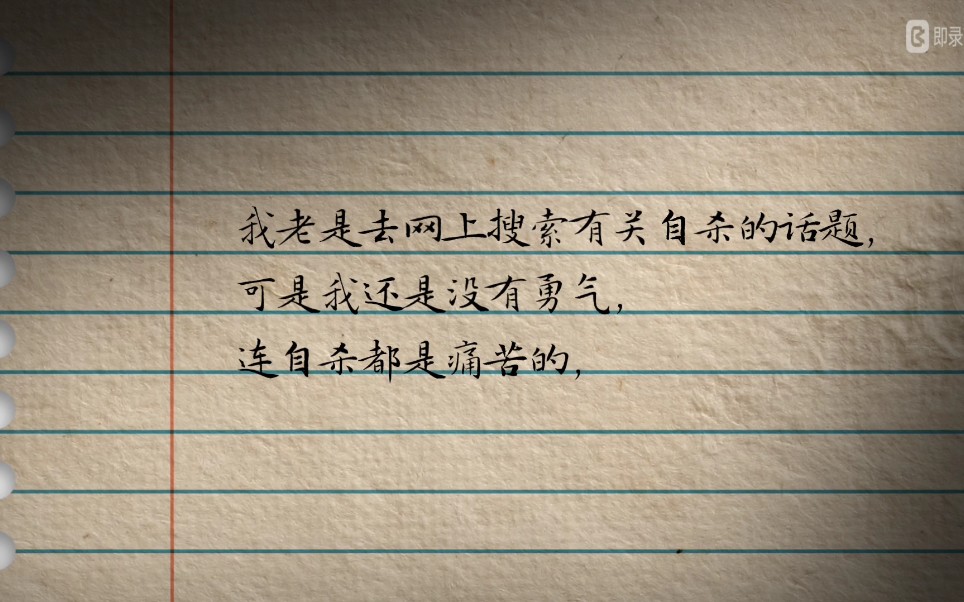 即录
我老是去网上搜索有关自杀的话题,
可是我还是没有勇气,
连自杀都是痛苦的,